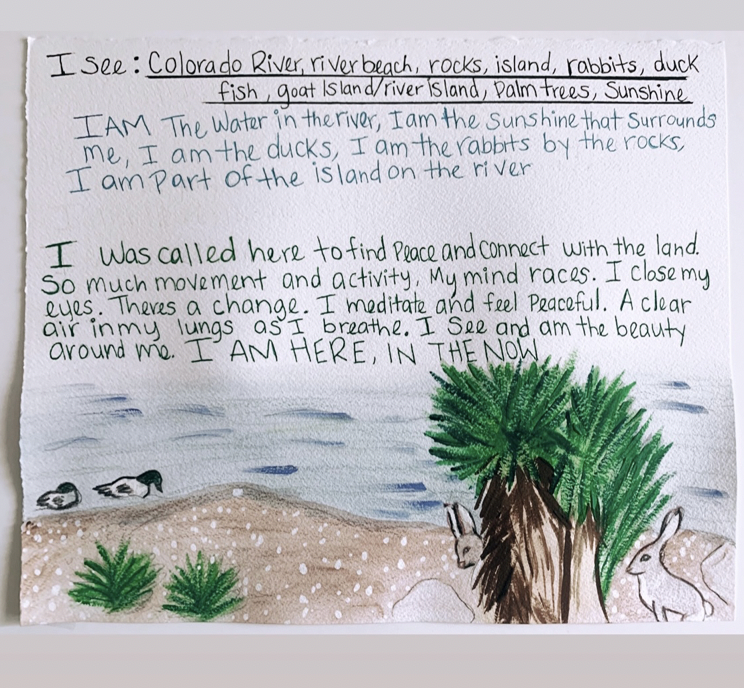 I see: Colorado River, riverbeach, rocks, island, rabbits, duck
fish, goat Island/river Island, Palm trees, Sunshine
I AM The Water in the river, I am the Sunshine that Surrounds
me, I am the ducks, I am the rabbits by the rocks,
I am part of the island on the river
I Was called here to find Peace and Connect with the land.
So much movement and activity, My mind races. I close my
eyes. Theres a change. I meditate and feel Peaceful. A clear
air in my lungs as I breathe. I See and am the beauty
around me. I AM HERE, IN THE NOW